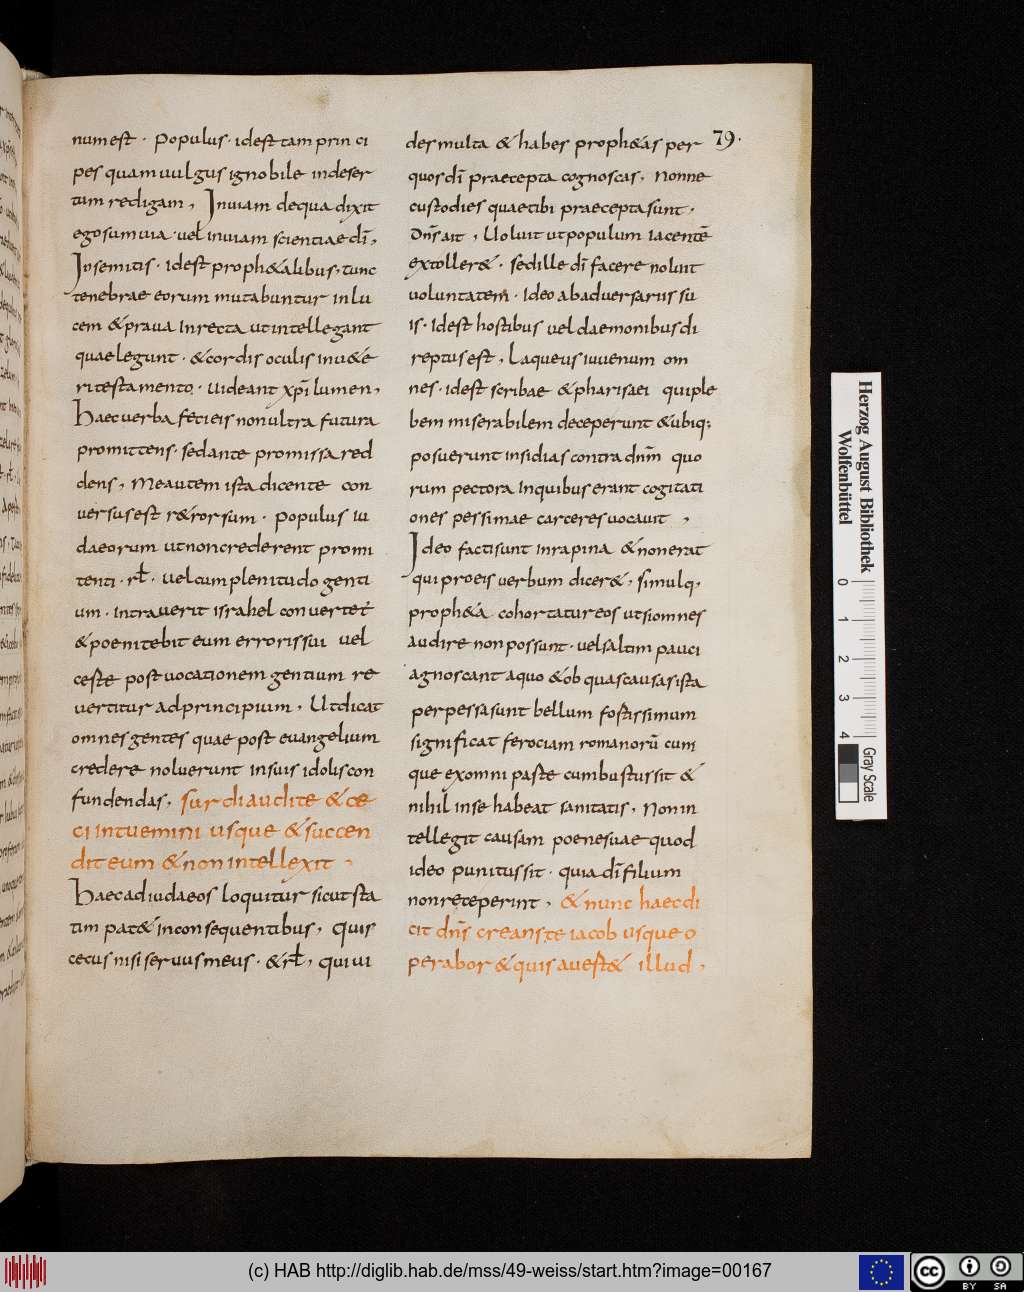 num est · Populus · idest tam prin ci
pes quam uulgus ignobile indeser
tum redigam, Inuiam dequa dixit
ego sum uia · uel inuiam scientiae dī,
Insemitis · idest proph&alibus, tunc
tenebrae eorum mutabuntur inlu
cem & praua inrecta utintellegant
quae legunt · & cordis oculis inu&e
ri testamento · uideant xp̄i lumen,
Haec uerba feci eis non ultra futura
promittens · sedante promissa red
dens, Me autem ista dicente con
uersus est r&rorsum · Populus iu
daeorum utnoncrederent promi
tenti · rł · uel cum plenitudo genti
um · intrauerit israhel conuertet̄
& poenitebit eum errorissui uel
ceste post uocationem gentium re
uertitur adprincipium, Utdicat
omnes gentes quae post euangelium
credere noluerunt insuis idolis con
fundendas, surdi audite & ce
ci intuemini usque & succen
dit eum & non intellexit,
Haec ad iudaeos loquitur sicut sta
tim pat& inconsequentibus, Quis
cecus nisi seruus meus · & rł, qui ui
des multa & habes proph&as per
quos dī praecepta cognoscas, Nonne
custodies quae tibi praecepta sunt,
Dn̄s ait, Uoluit ut populum iacentē
extoller& · sed ille dī facere noluit
uoluntatem · Ideo ab aduersariis su
is · idest hostibus uel daemonibus di
reptus est, Laqueus iuuenum om
nes · idest scribae & pharisaei qui ple
bem miserabilem deceperunt & ubiq;
posuerunt insidias contra dnm̄ quo
rum pectora inquibus erant cogitati
ones pessimae carceres uocauit,
Ideo facti sunt inrapina & non erat
qui pro eis uerbum dicer&, simulq,
proph&a cohortatur eos utsi omnes
audire non possunt · uel saltim pauci
agnoscant a quo & ob quas causas ista
perpessa sunt bellum fostissimum
significat ferociam romanorū cum
que exomni paste cumbustus sit &
nihil inse habeat sanitatis, Non in
tellegit causam poenesuae quod
ideo punitus sit · quia dī filium
non receperint, & nunc haec di
cit dn̄s creans te iacob usque o
perabor & quis auest& illud,
79·
Herzog August Bibliothek
Wolfenbüttel
0 1 2 3 4
Gray Scale
(c) HAB http://diglib.hab.de/mss/49-weiss/start.htm?image=00167
cc BY SA